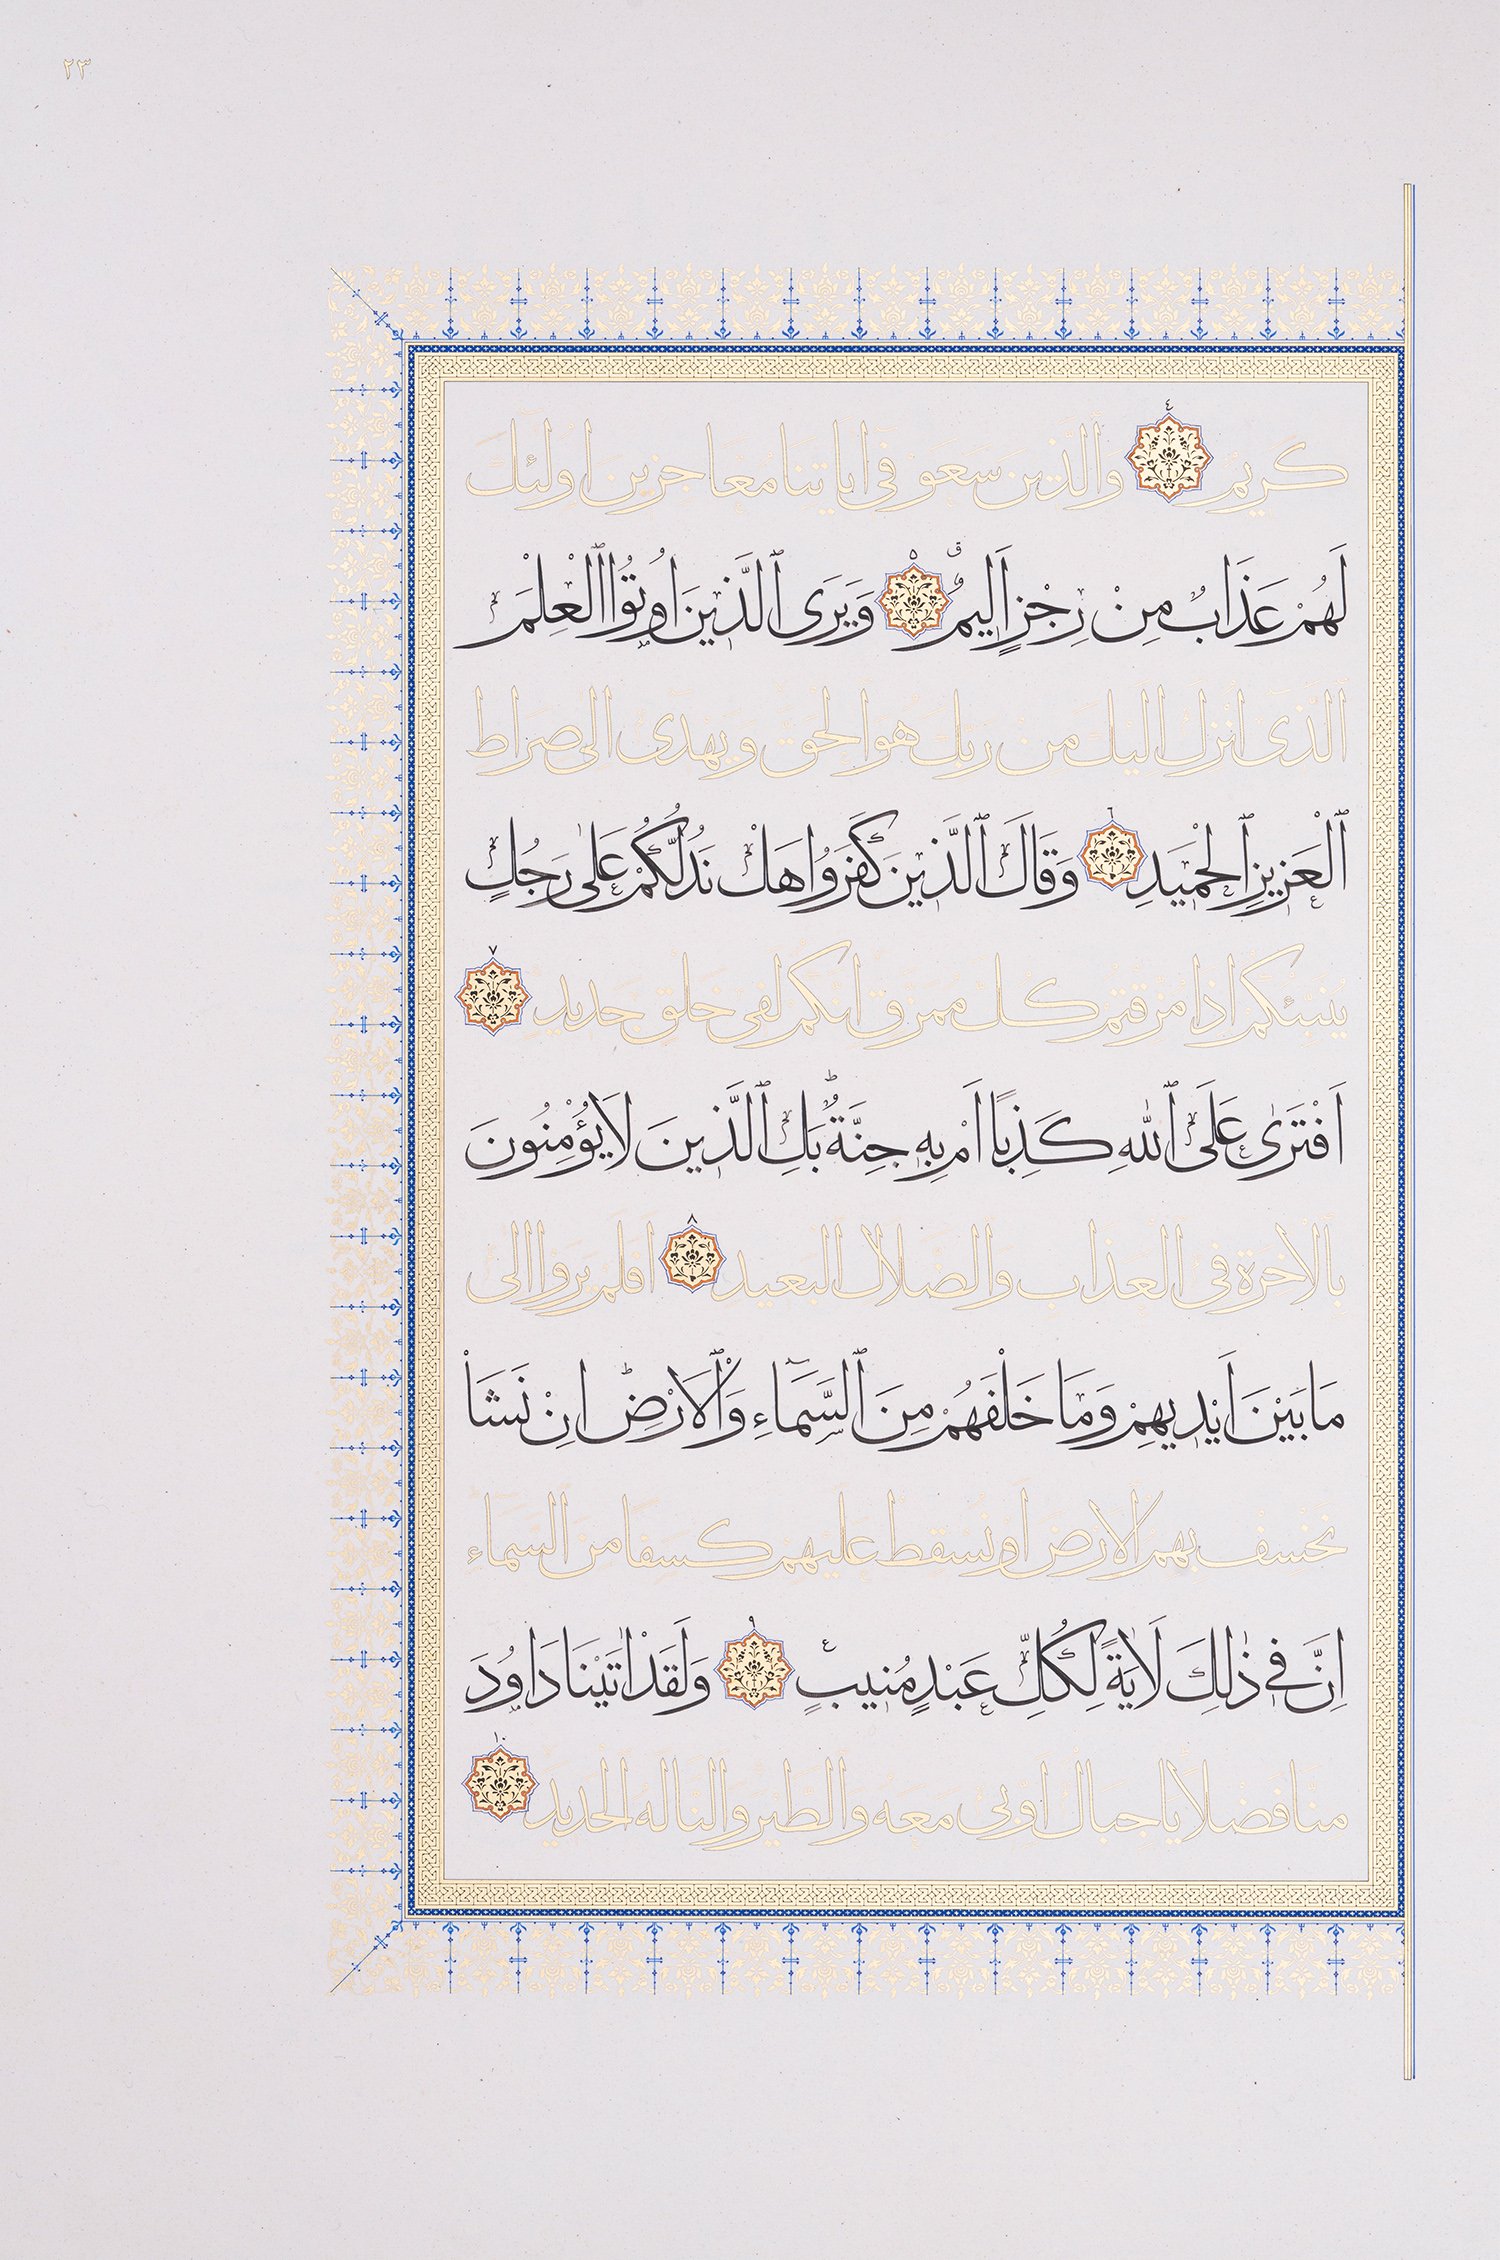 ٢٣
٤
كريم والذين سعو في اياتنا معاجزين اولئك
لَهُمْ عَذَابٌ مِنْ رِجْزٍ اَلِيمٌ ٥ وَيَرَى ٱلَّذِينَ اُوتُوا ٱلْعِلْمَ
ٱلذى انزل اليك من ربك هو ٱلحق ويهدى الى صراط
ٱلْعَزِيزِ ٱلْحَمِيدِ ٦ وَقَالَ ٱلَّذِينَ كَفَرُوا هَلْ نَدُلُّكُمْ عَلٰى رَجُلٍ
ينبئكم اذا مزقتم كل ممزق انكم لفى خلق جديد ٧
اَفْتَرٰى عَلَى ٱللهِ كَذِبًا اَمْ بِهِ جِنَّةٌ ط بَلِ ٱلَّذِينَ لَا يُؤْمِنُونَ
بٱلاخرة فى ٱلعذاب وٱلضلال ٱلبعيد ٨ افلم يروا الى
مَا بَيْنَ اَيْدِيهِمْ وَمَا خَلْفَهُمْ مِنَ ٱلسَّمَٓاءِ وَٱلْاَرْضِ ط اِنْ نَشَاْ
نخسف بهم ٱلارض او نسقط عليهم كسفا من ٱلسماء
اِنَّ فِي ذٰلِكَ لَاٰيَةً لِكُلِّ عَبْدٍ مُنِيبٍ ع ٩ وَلَقَدْ اٰتَيْنَا دَاوُدَ
منا فضلا يا جبال اوبى معه وٱلطير والنا له ٱلحديد ١٠